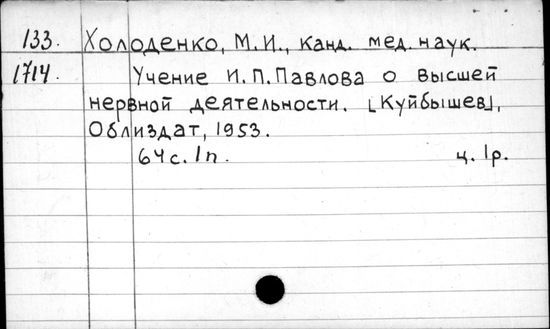 133. Холоденко, М.И., канд. мед. наук.
1714. Учение И.П.Павлова о высшей
нервной деятельности. [Куйбышев],
Облиздат, 1953.
64с. 1п. ц. 1р.